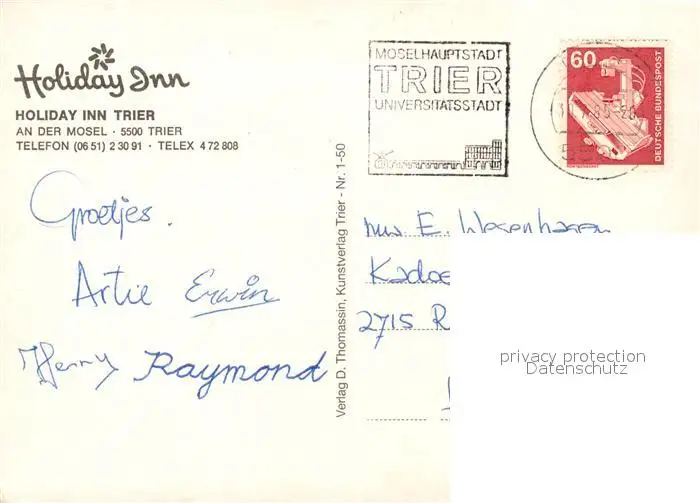 Holiday Inn
HOLIDAY INN TRIER
AN DER MOSEL · 5500 TRIER
TELEFON (06 51) 2 30 91 · TELEX 4 72 808
MOSELHAUPTSTADT
TRIER
UNIVERSITÄTSSTADT
60
DEUTSCHE BUNDESPOST
Groetjes.
Artie Erwin
Henny Raymond
Verlag D. Thomassin, Kunstverlag Trier - Nr. 1-50
E.
Kadoe
2715 R
privacy protection
Datenschutz